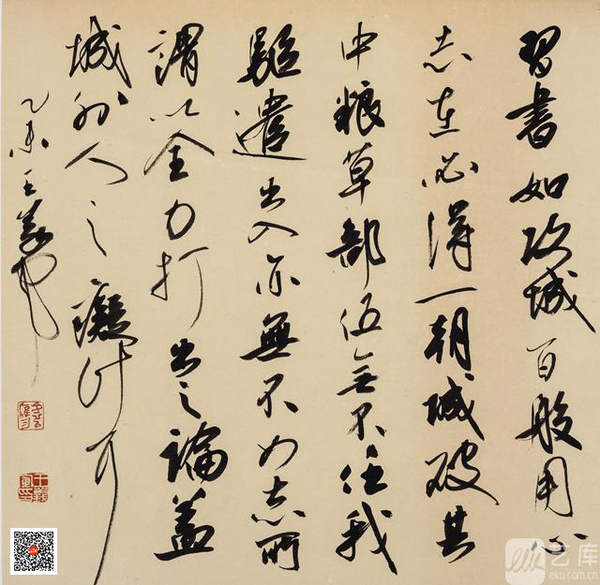 習書如攻城百般用心
志在必得一朝城破其
中粮草部伍無不任我
驅遣出入亦無不如志所
謂以全力打出之論蓋
城外人之癡計耳
乙未王義軍
艺库
eku.com.cn